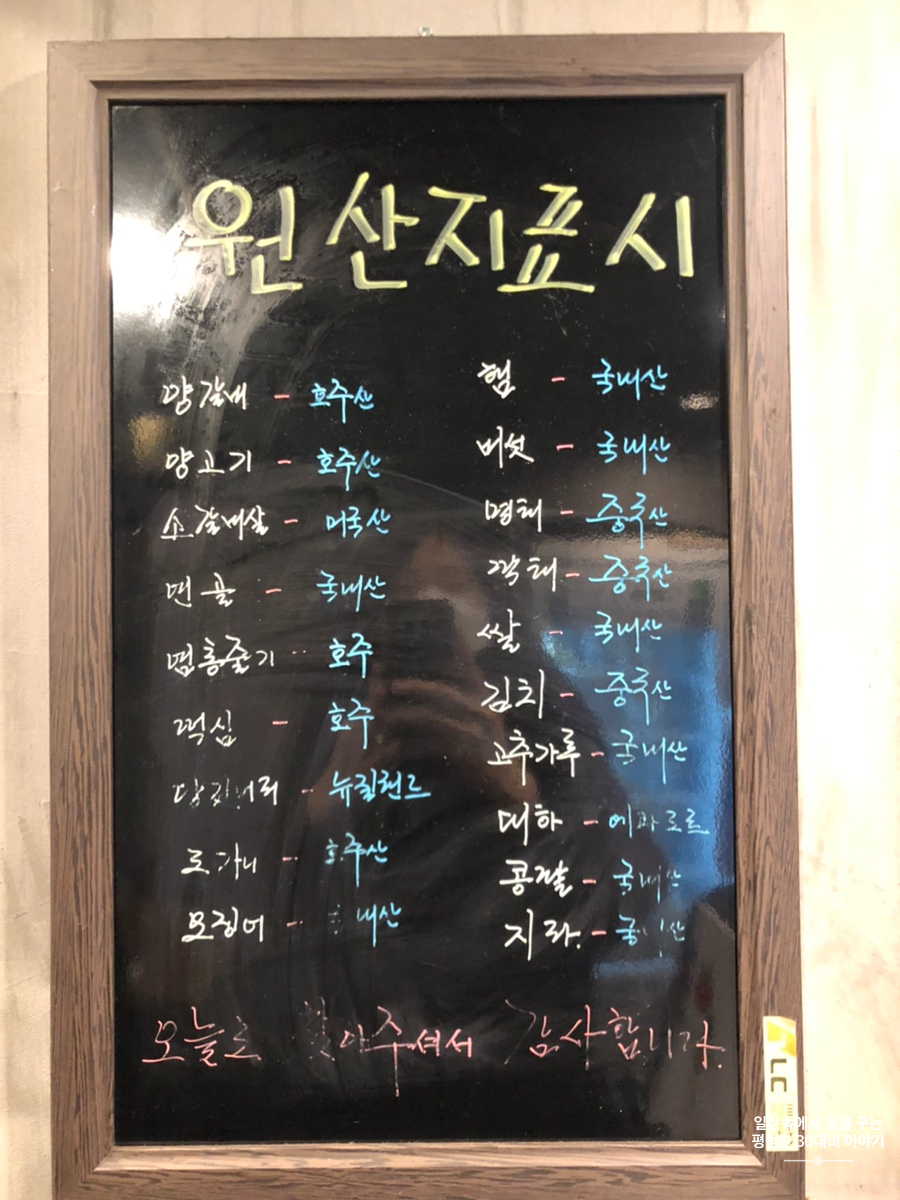 원산지표시
양갈비 - 호주산
양고기 - 호주산
소갈비살 - 미국산
면골 - 국내산
호주
떡심 - 호주
뉴질랜드
도가니 - 호주산
오징어 - 내산
햄 - 국내산
버섯 - 국내산
명태 - 중국산
먹태 - 중국산
쌀 - 국내산
김치 - 중국산
고추가루 - 국내산
대하 - 에콰도르
콩팥 - 국내산
지라 - 국 산
오늘도 찾아주셔서 감사합니다.